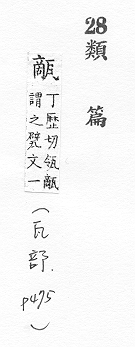 28 類篇
甋 丁歷切瓴甋
謂之甓文一
(瓦部. p475)